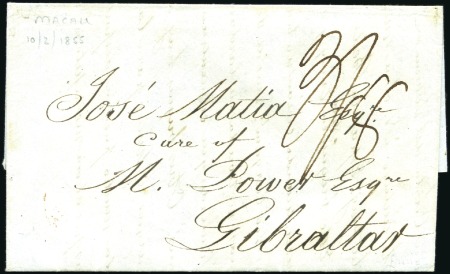 - MACAU
10/2/1855
José Matia Esqre
Care of
M. Power Esqre
Gibraltar